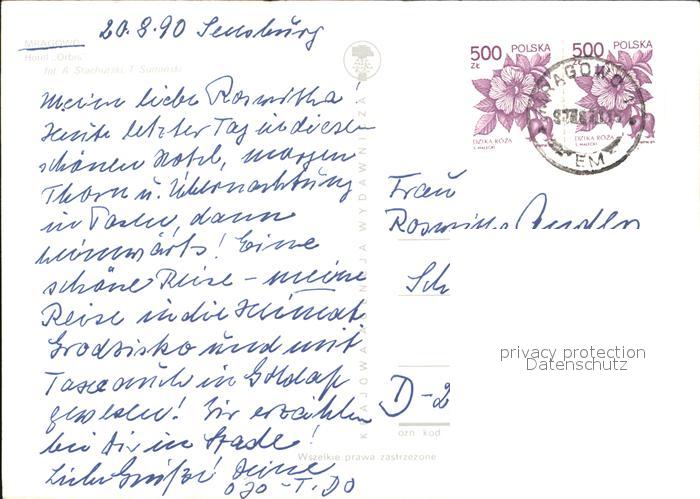 20.8.90 Sensburg
MRĄGOWO
Hotel „Orbis”
fot. A. Stachurski, T. Sumiński
Meine liebe Roswitha!
Heute letzter Tag in diesem
schönen Hotel, morgen
Thorn u. Übernachtung
in Posen, dann
heimwärts! Eine
schöne Reise – meine
Reise in die Heimat
Grodzisko und mit
Taxe auch in Goldap
gewesen! Wir erzählen
bei Dir in Stade!
Liebe Grüße Deine
KRAJOWA AGENCJA WYDAWNICZA
500 ZŁ POLSKA
DZIKA RÓŻA
S. MAŁECKI
500 ZŁ POLSKA
DZIKA RÓŻA
S. MAŁECKI
MRĄGOWO 1
EM
Frau
Roswitha
Sch
D-2
ozn kod
privacy protection
Datenschutz
Wszelkie prawa zastrzeżone